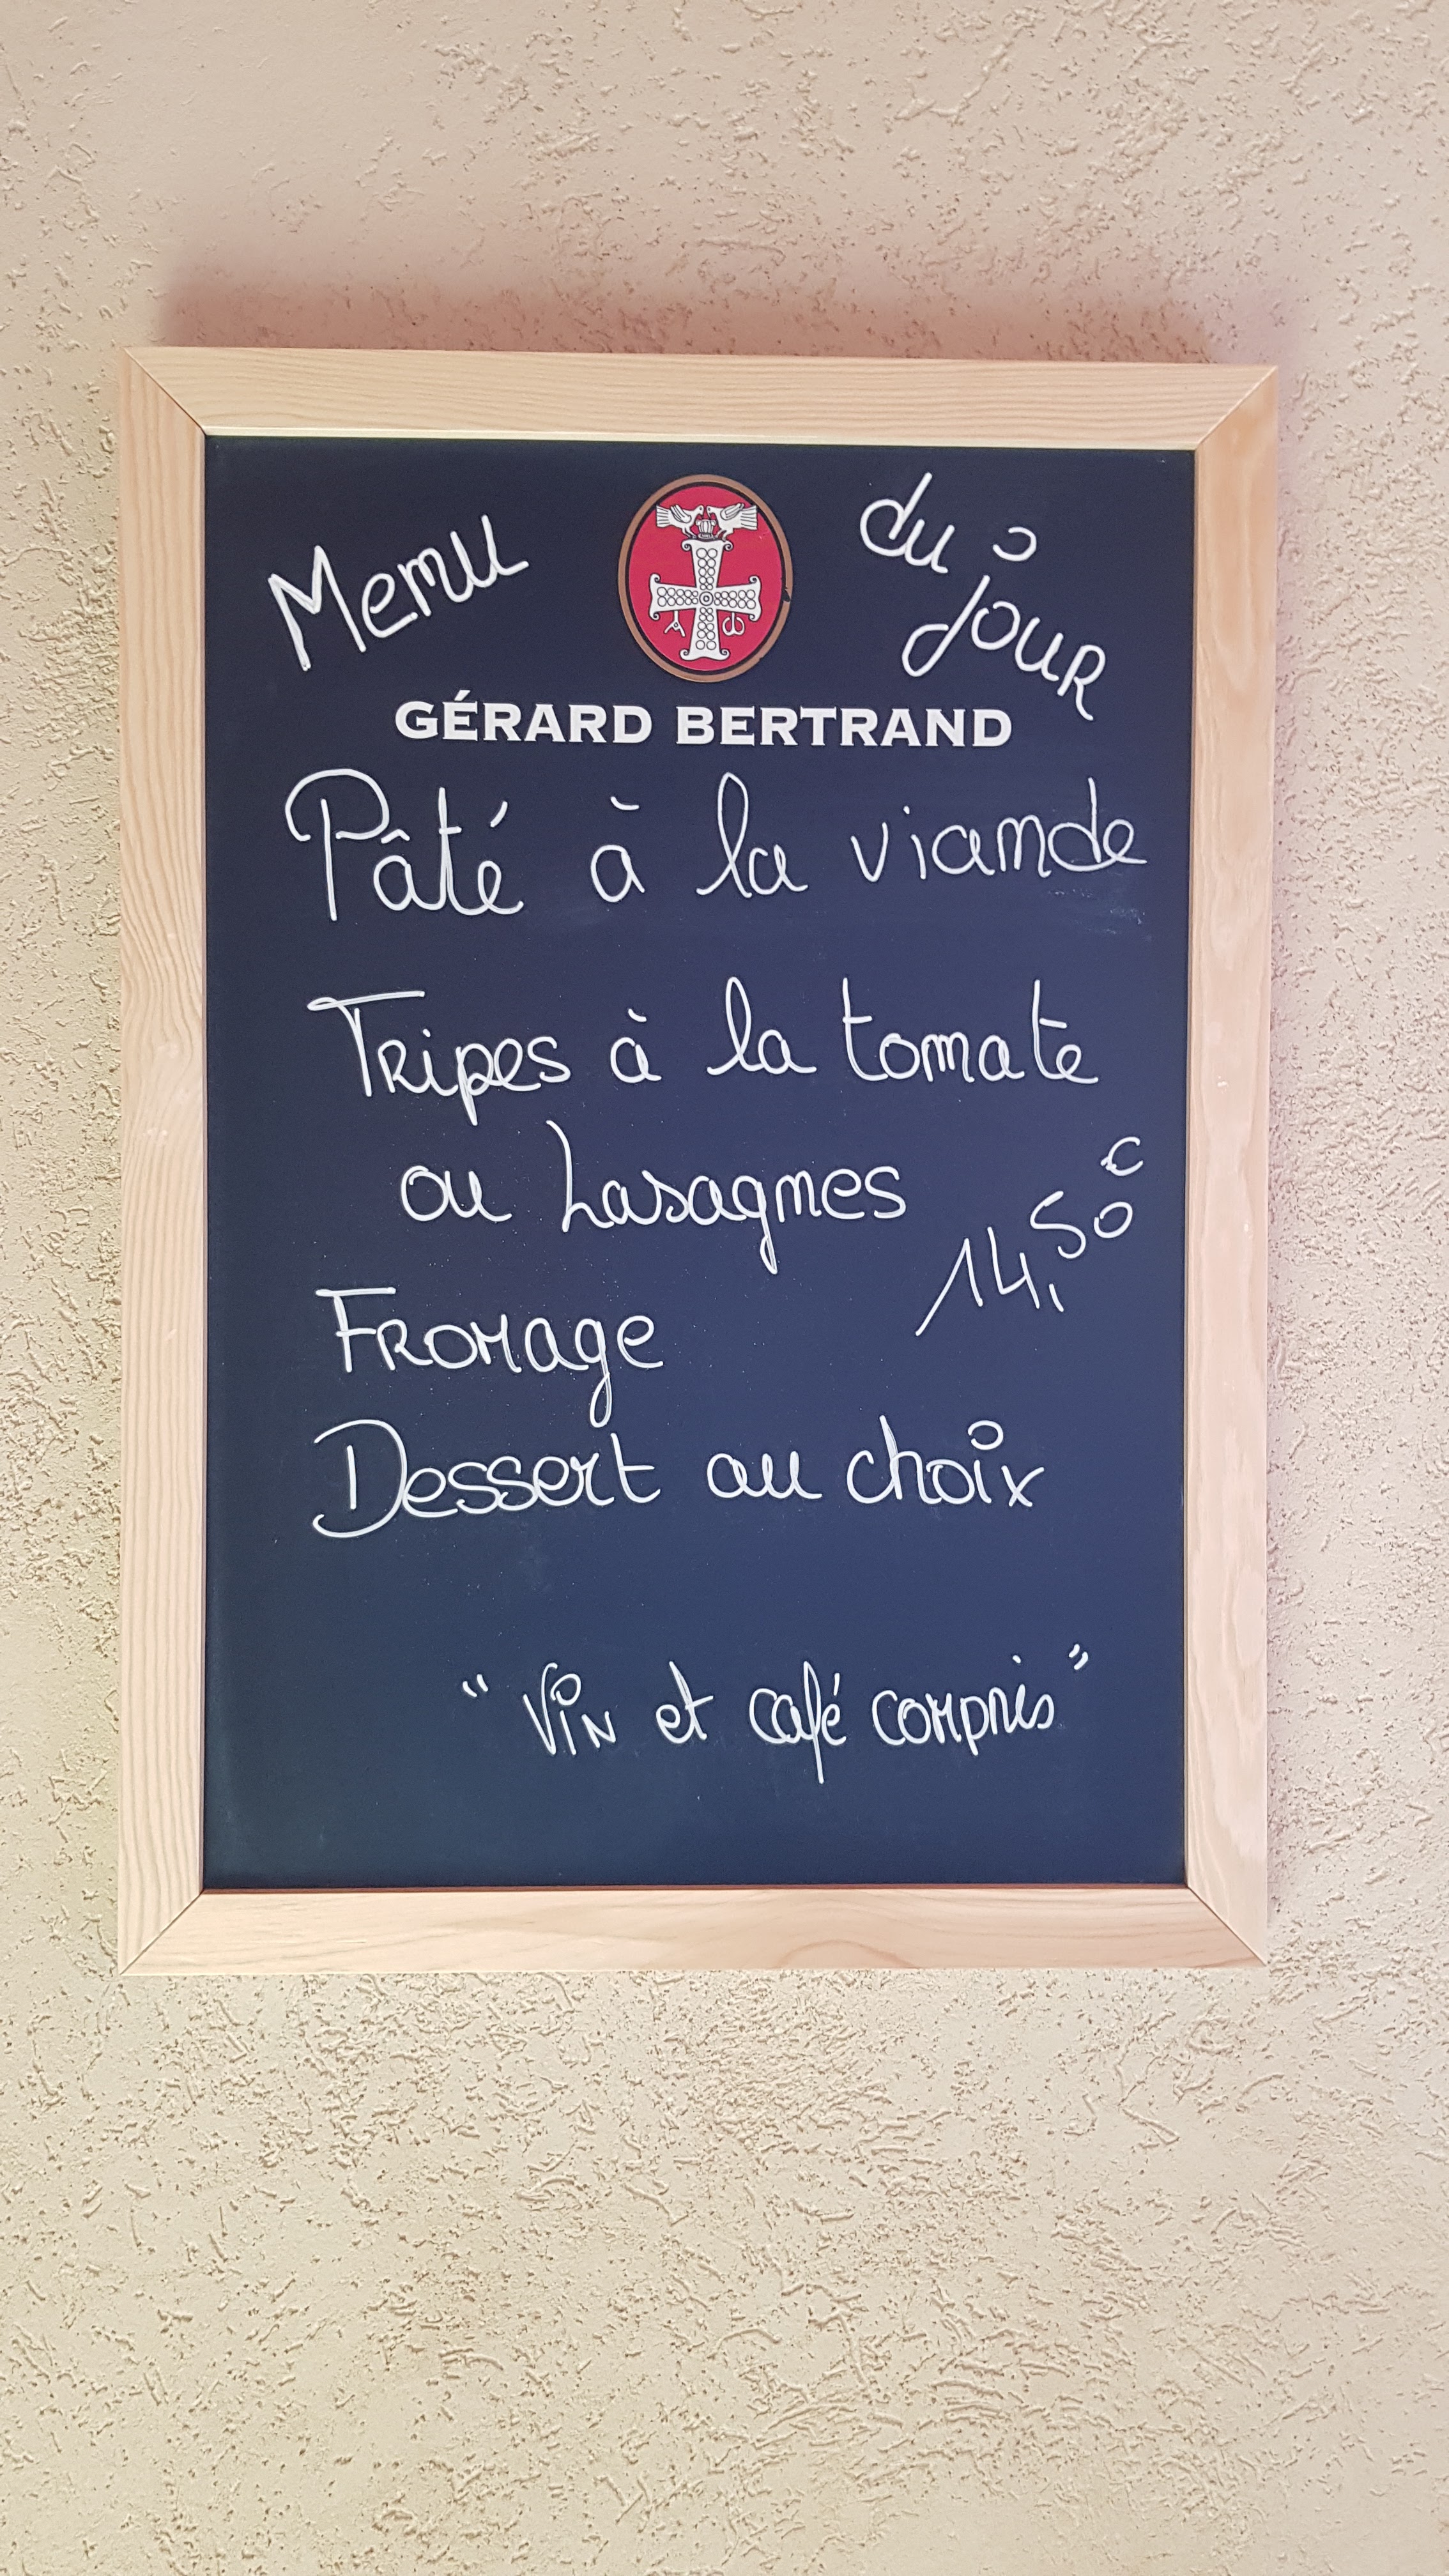 Menu du jour
GÉRARD BERTRAND
Pâté à la viande
Tripes à la tomate
ou Lasagnes
14,50€
Fromage
Dessert au choix
"Vin et café compris"